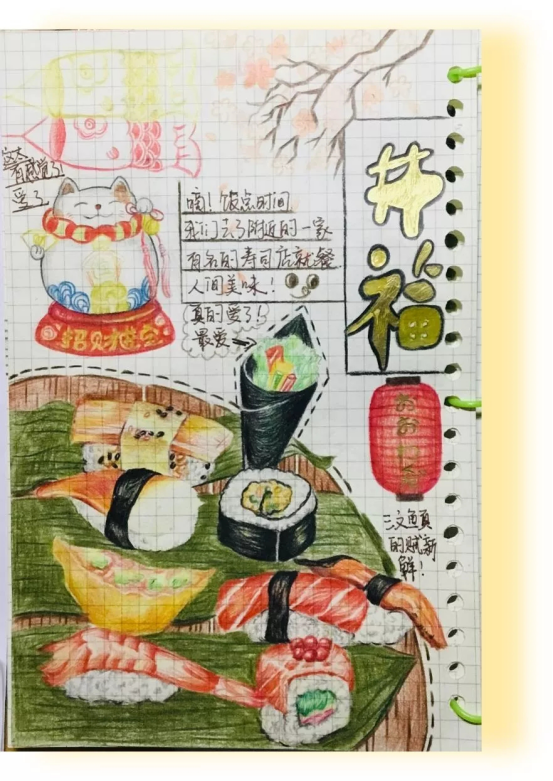 井
福
有感觉了
爱了
嘀！饭点时间
我们去了附近的一家
有名的寿司店就餐
人间美味！
真的爱了！
最爱
招财进宝
三文鱼真
的贼新
鲜！